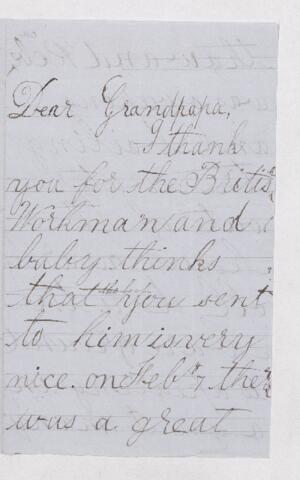 Dear Grandpapa,
I thank
you for the British
Workman and
baby thinks
that you sent
to him is very
nice. on Feb 7 there
was a great